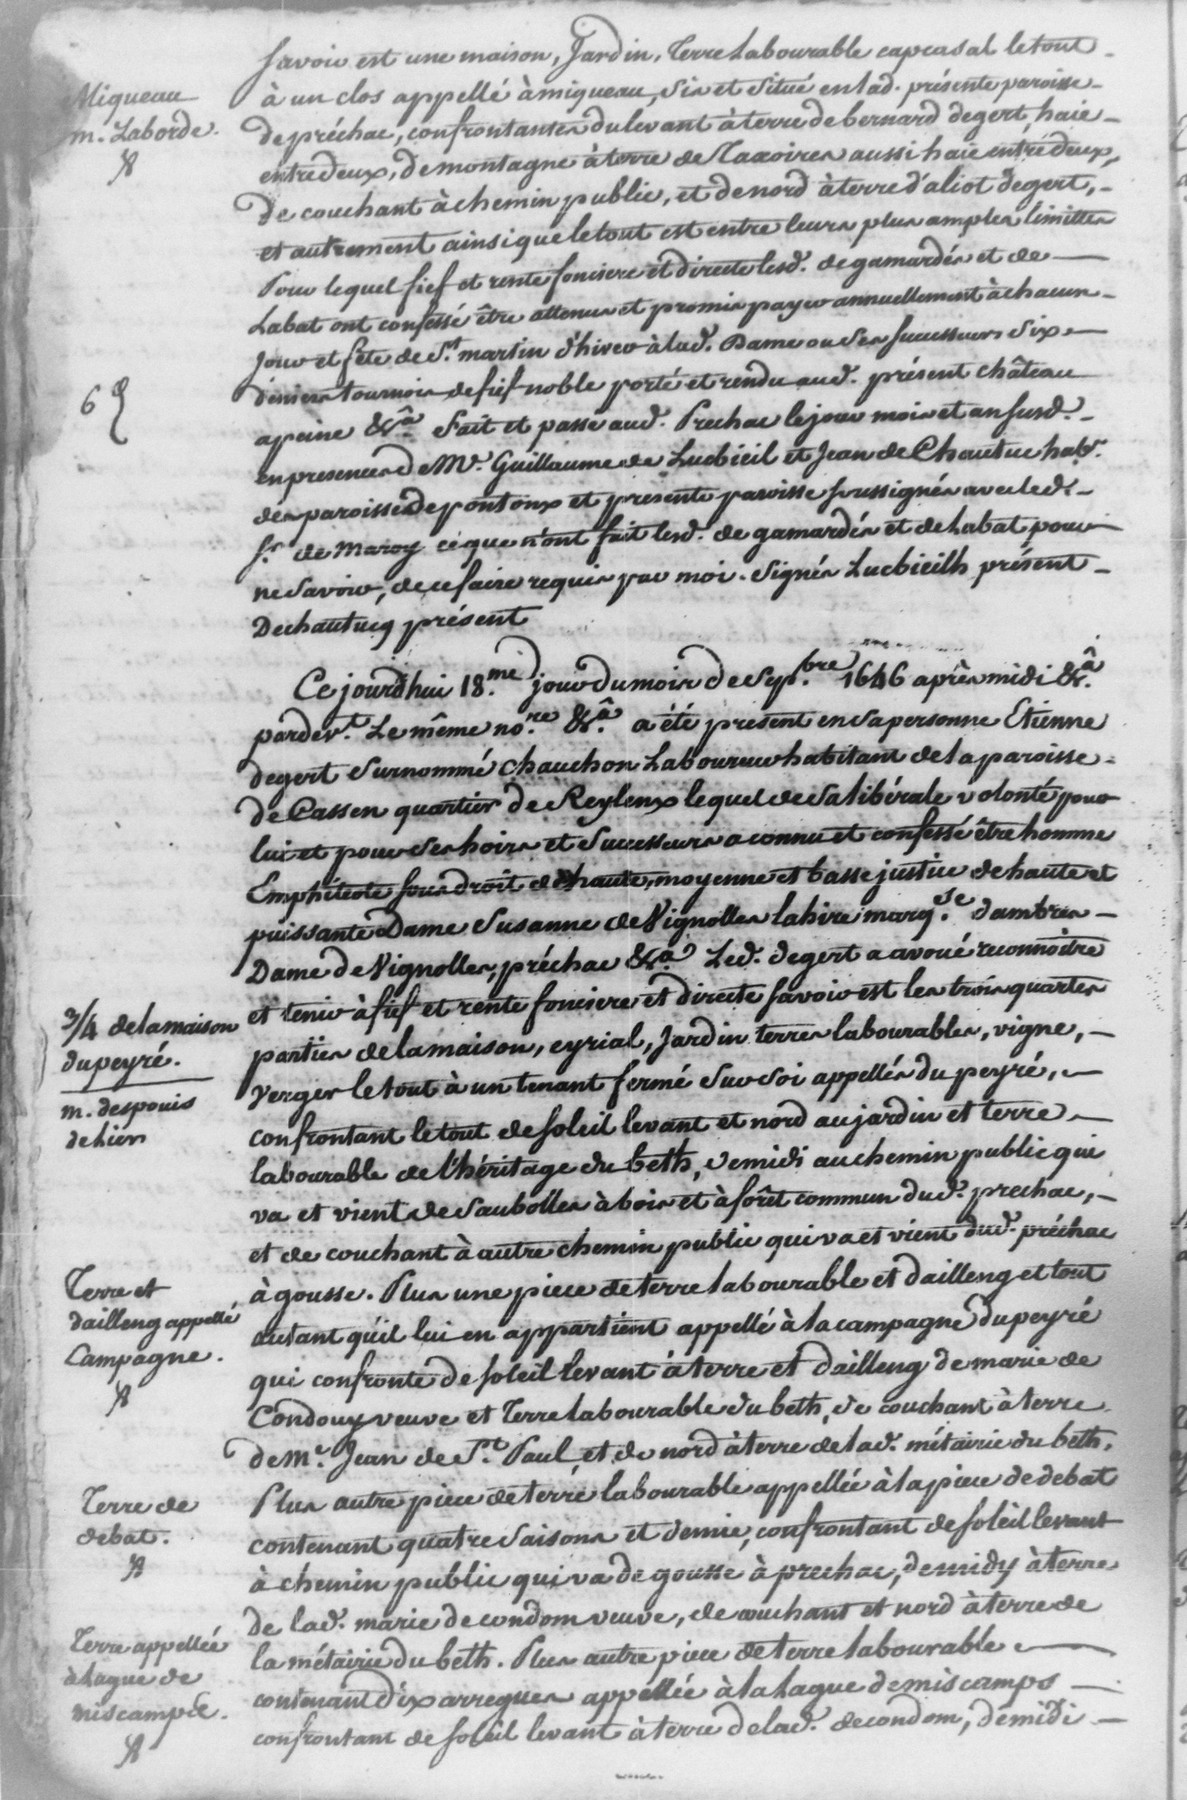 Savoir est une maison, Jardin, Terre Labourable capcasal le tout
à un clos appellé à miqueau, sis et situé en lad. présente paroisse
de préchac, confrontantes du levant à terre de bernard degert, haie
entredeux, de montagne à terre de Taxoires aussi haie entredeux,
de couchant à chemin public, et de nord à terre d'aliot degert,
et autrement ainsi que le tout est entre leurs plus amples limittes
Pour lequel fief et rente fonciere et directe lesd. de gamardés et de
Labat ont confessé être attenus et promis payer annuellement à chacun
Jour et fête de St. martin d'hiver à lad. Dame ou ses successeurs six
deniers tournois de fief noble porté et rendu aud. présent château
a peine &ca. Fait et passé aud. Prechac le jour mois et an susd.
en presences de Mr. Guillaume de Lucbieil et Jean de Chautuc habt.
des paroisses de pontonx et presente paroisse soussignés avec led.
Sr. de Maroy ce que n'ont fait lesd. de gamardés et de Labat pour
ne savoir, de ce faire requis par moi. Signés Lucbieilh présent
Dechautucq présent
Miqueau
m. Laborde.
6
Ce jourd'hui 18.me jour du mois de Sep.bre 1646 après midi &ca.
pardev.t Le même no.re &ca. a été présent en sa personne Etienne
degert surnommé chauchon Laboureur habitant de la paroisse
de Cassen quartier de Reyleux lequel de sa libérale volonté pour
lui et pour ses hoirs et successeurs a connu et confessé être homme
Emphiteote sous droit de haute, moyenne et basse justice de haute et
puissante Dame Susanne de Vignolles lahire marq.se d'ambres
Dame de Vignolles, préchac &ca. Led. degert a avoué reconnoitre
et tenir à fief et rente fonciere et directe savoir est les trois quartes
parties de la maison, eyrial, Jardin terres labourables, vigne,
Verger le tout à un tenant fermé sur soi appellés du peyré,
confrontant le tout de soleil levant et nord au jardin et terre
labourable de l'héritage du beth, de midi au chemin public qui
va et vient de Saubolles à bois et à forêt commun dud. prechac,
et de couchant à autre chemin public qui va et vient dud. préchac
à gousse. Plus une piece de terre labourable et dailleng et tout
autant qu'il lui en appartient appellé à la campagne du peyré
qui confronte de soleil levant à terre et dailleng de marie de
Condouy veuve et Terre labourable du beth, de couchant à terre
de Mr. Jean de St. Paul, et de nord à terre de lad. métairie du beth.
Plus autre piece de terre labourable appellée à la piece de debat
contenant quatre saisons et demie, confrontant de soleil levant
à chemin public qui va de gousse à prechac, de midy à terre
de lad. marie de condom veuve, de couchant et nord à terre de
la métairie du beth. Plus autre piece de terre labourable
contenant dix arregues appellée à la hague de miscamps
confrontant de soleil levant à terre de lad. de condom, de midi
3/4 de la maison
du peyré.
m. despouis
de hien
Terre et
dailleng appellé
Campagne.
Terre de
debat.
Terre appellée
à hague de
miscamps.